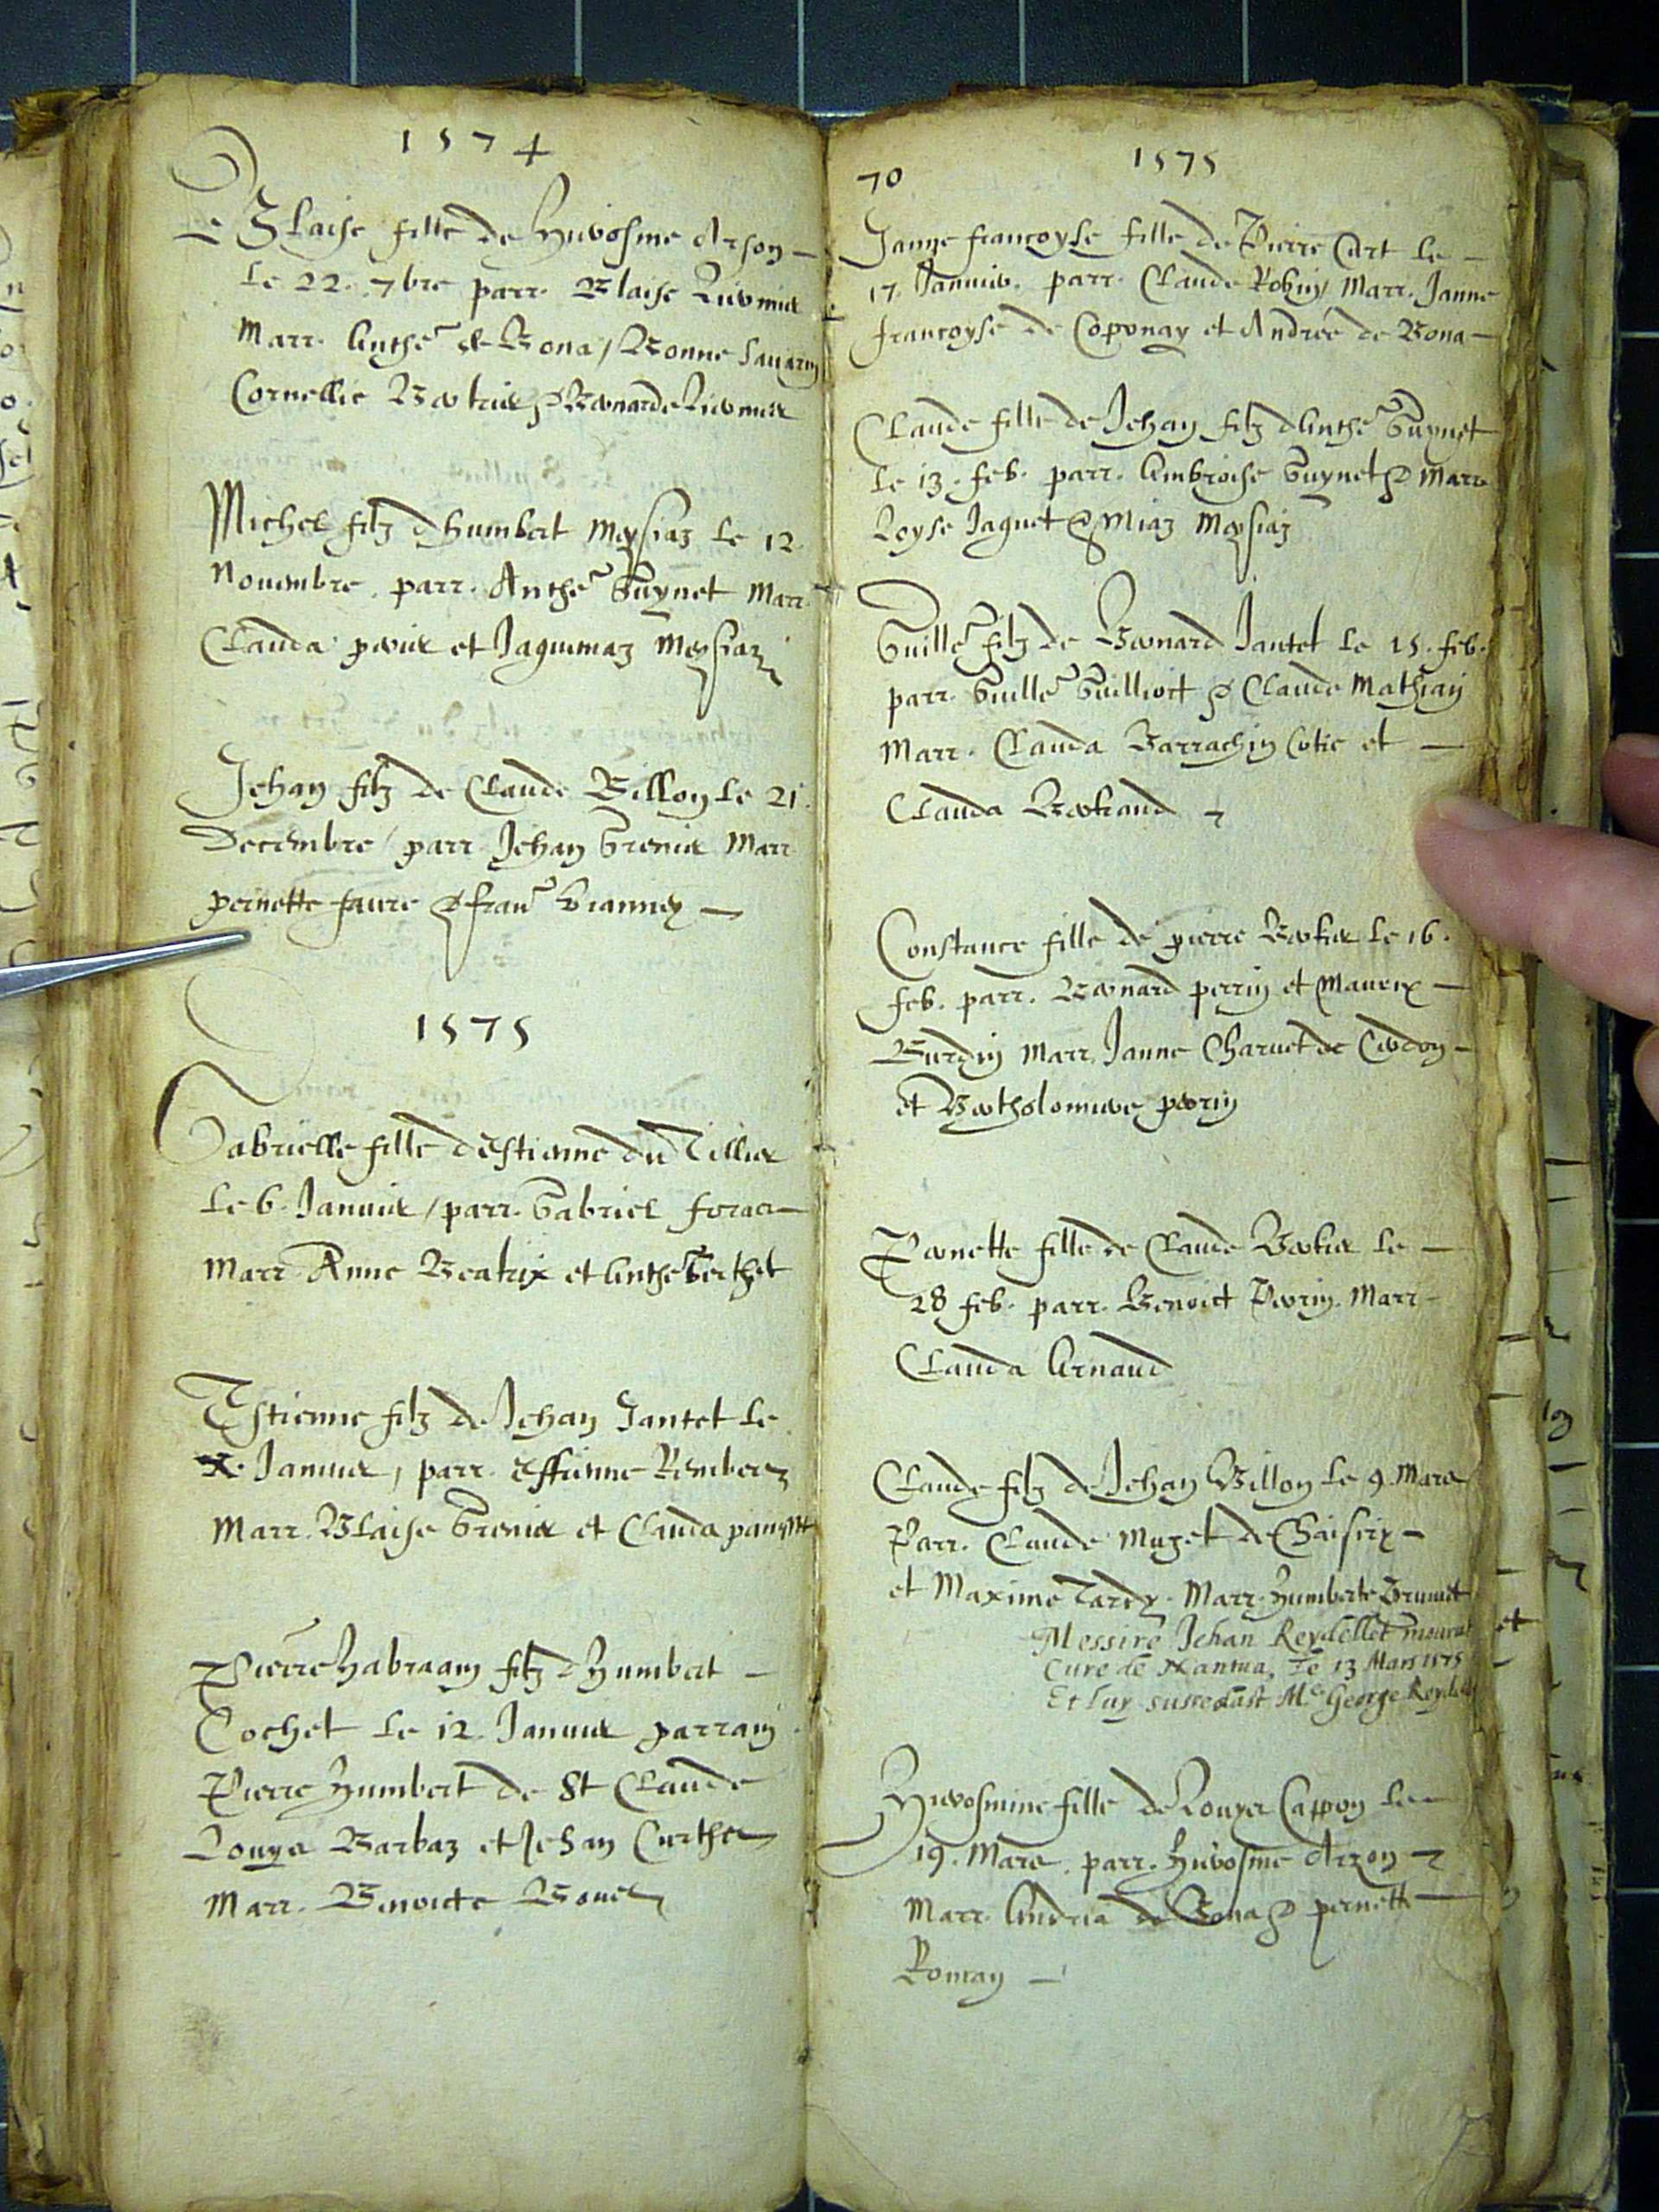 1574
Blaise fille de Hierosme Arson
le 22. 7bre parr. Blaise
Marr. Anthe de Bona / Bonne Savarin
Cornellie
Michel filz d humbert Meysiaz le 12
Novembre. parr. Anthe Guynet Marr
Clauda perier et Jaquemaz Meysiaz
Jehan filz de Claude Billon le 21
Decembre / parr Jehan Grenier Marr
pernette faure & Vianney
1575
Gabrielle fille d Estienne du Tillier
le 6. Janvier / parr. Gabriel
Marr Anne Beatrix et Anthe Berthet
Estienne filz de Jehan Jantet le
Janvier, parr. Estienne
Marr. Blaise Grenier et Clauda
Pierre habraam filz d Humbert
Cochet le 12. Janvier parrain
Pierre Humbert de St Claude
Louys Barbaz et Jehan
Marr. Benoicte
70
1575
Janne francoyse fille de Pierre Cart le
17. Janvier. parr. Claude Robin, Marr. Janne
francoyse de Coponay et Andrée de Bona
Claude fille de Jehan filz d Anthe Guynet
le 13. feb. parr. Ambroise Guynet & Marr
Loyse Jaquet & Miaz Meysiaz
Guille filz de Bernard Jantet le 15. feb.
parr. Guille Guilliott & Claude Mathian
Marr. Clauda Barrachin et
Clauda Bertrand
Constance fille de pierre Bertier le 16.
feb. parr. Bernard perrin et
Burdin Marr. Janne Charvet de Cerdon
et Bartholomieve perrin
Pernette fille de Claude Bertier le
28 feb. parr. Benoict Perrin. Marr
Clauda Arnaud
Claude filz de Jehan Billon le 9. Mars
Parr. Claude Muget de
et Maxime Tardy. Marr. Humberte Brunet
Messire Jehan Reydellet mourut
Cure de Nantua, le 13 Mars 1575
Et luy succedast Me George
Hierosmine fille de Louys Cappon le
19. Mars. parr. Hierosme Arson
Marr. Andrea de Bona & pernette